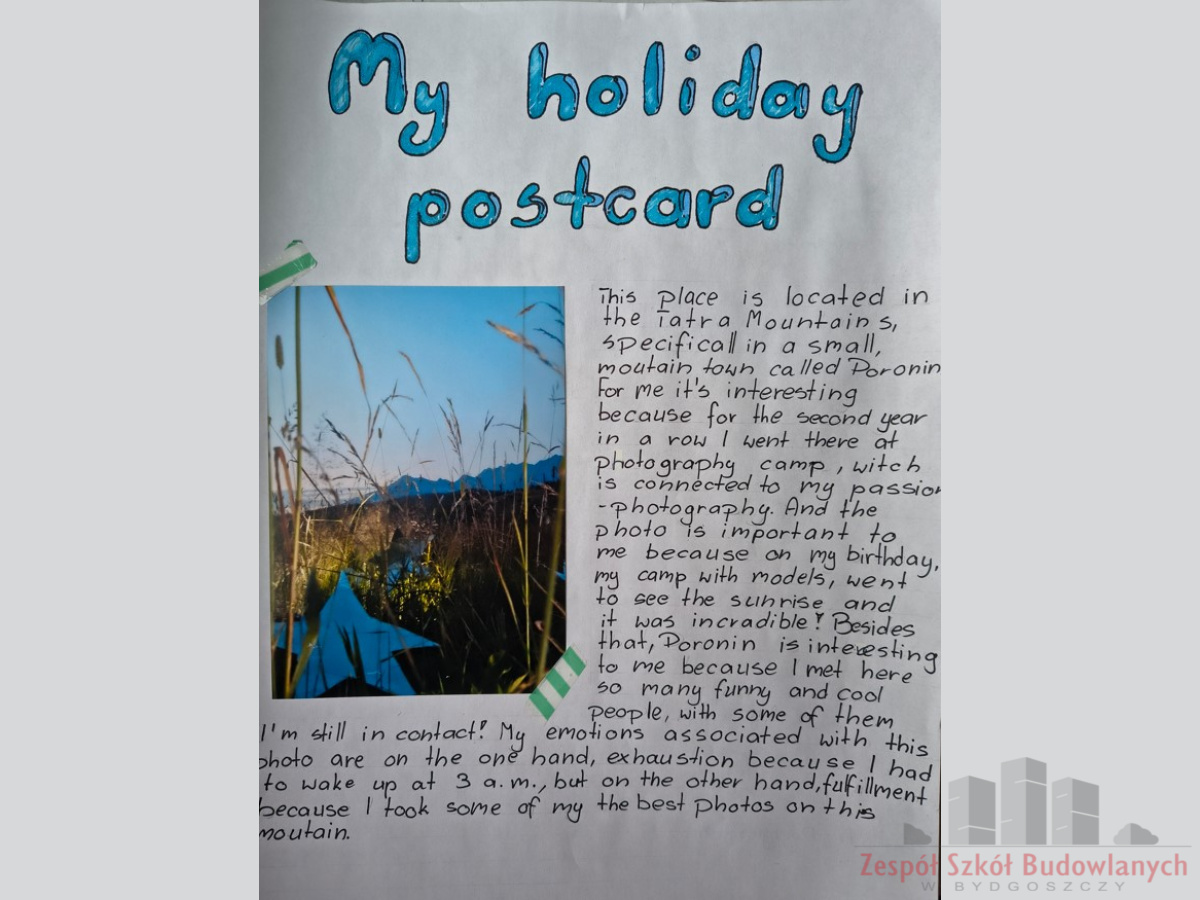 My holiday
postcard
This place is located in
the Tatra Mountains,
specificall in a small,
moutain town called Poronin
For me it's interesting
because for the second year
in a row I went there at
photography camp, witch
is connected to my passion
-photography. And the
photo is important to
me because on my birthday,
my camp with models, went
to see the sunrise and
it was incradible! Besides
that, Poronin is interesting
to me because I met here
so many funny and cool
people, with some of them
I'm still in contact! My emotions associated with this
photo are on the one hand, exhaustion because I had
to wake up at 3 a.m., but on the other hand, fulfillment
because I took some of my the best photos on this
moutain.
Zespół Szkół Budowlanych
W BYDGOSZCZY